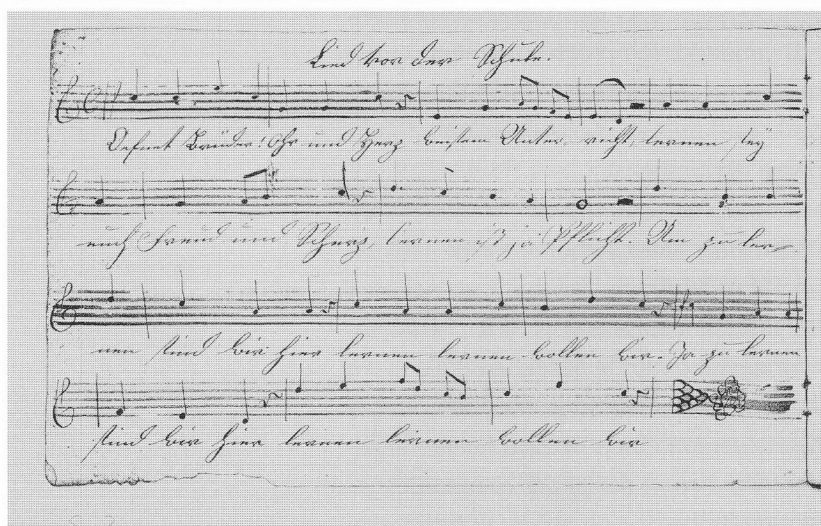 Lied vor der Schule.
Oefnet Brüder! Ohr und Herz beistem Unter, richt, lernen sey
euch Freud und Scherz, lernen ist ja Pflicht. Um zu ler-
nen sind wir hier lernen lernen wollen wir. Ja zu lernen
sind wir hier lernen lernen wollen wir